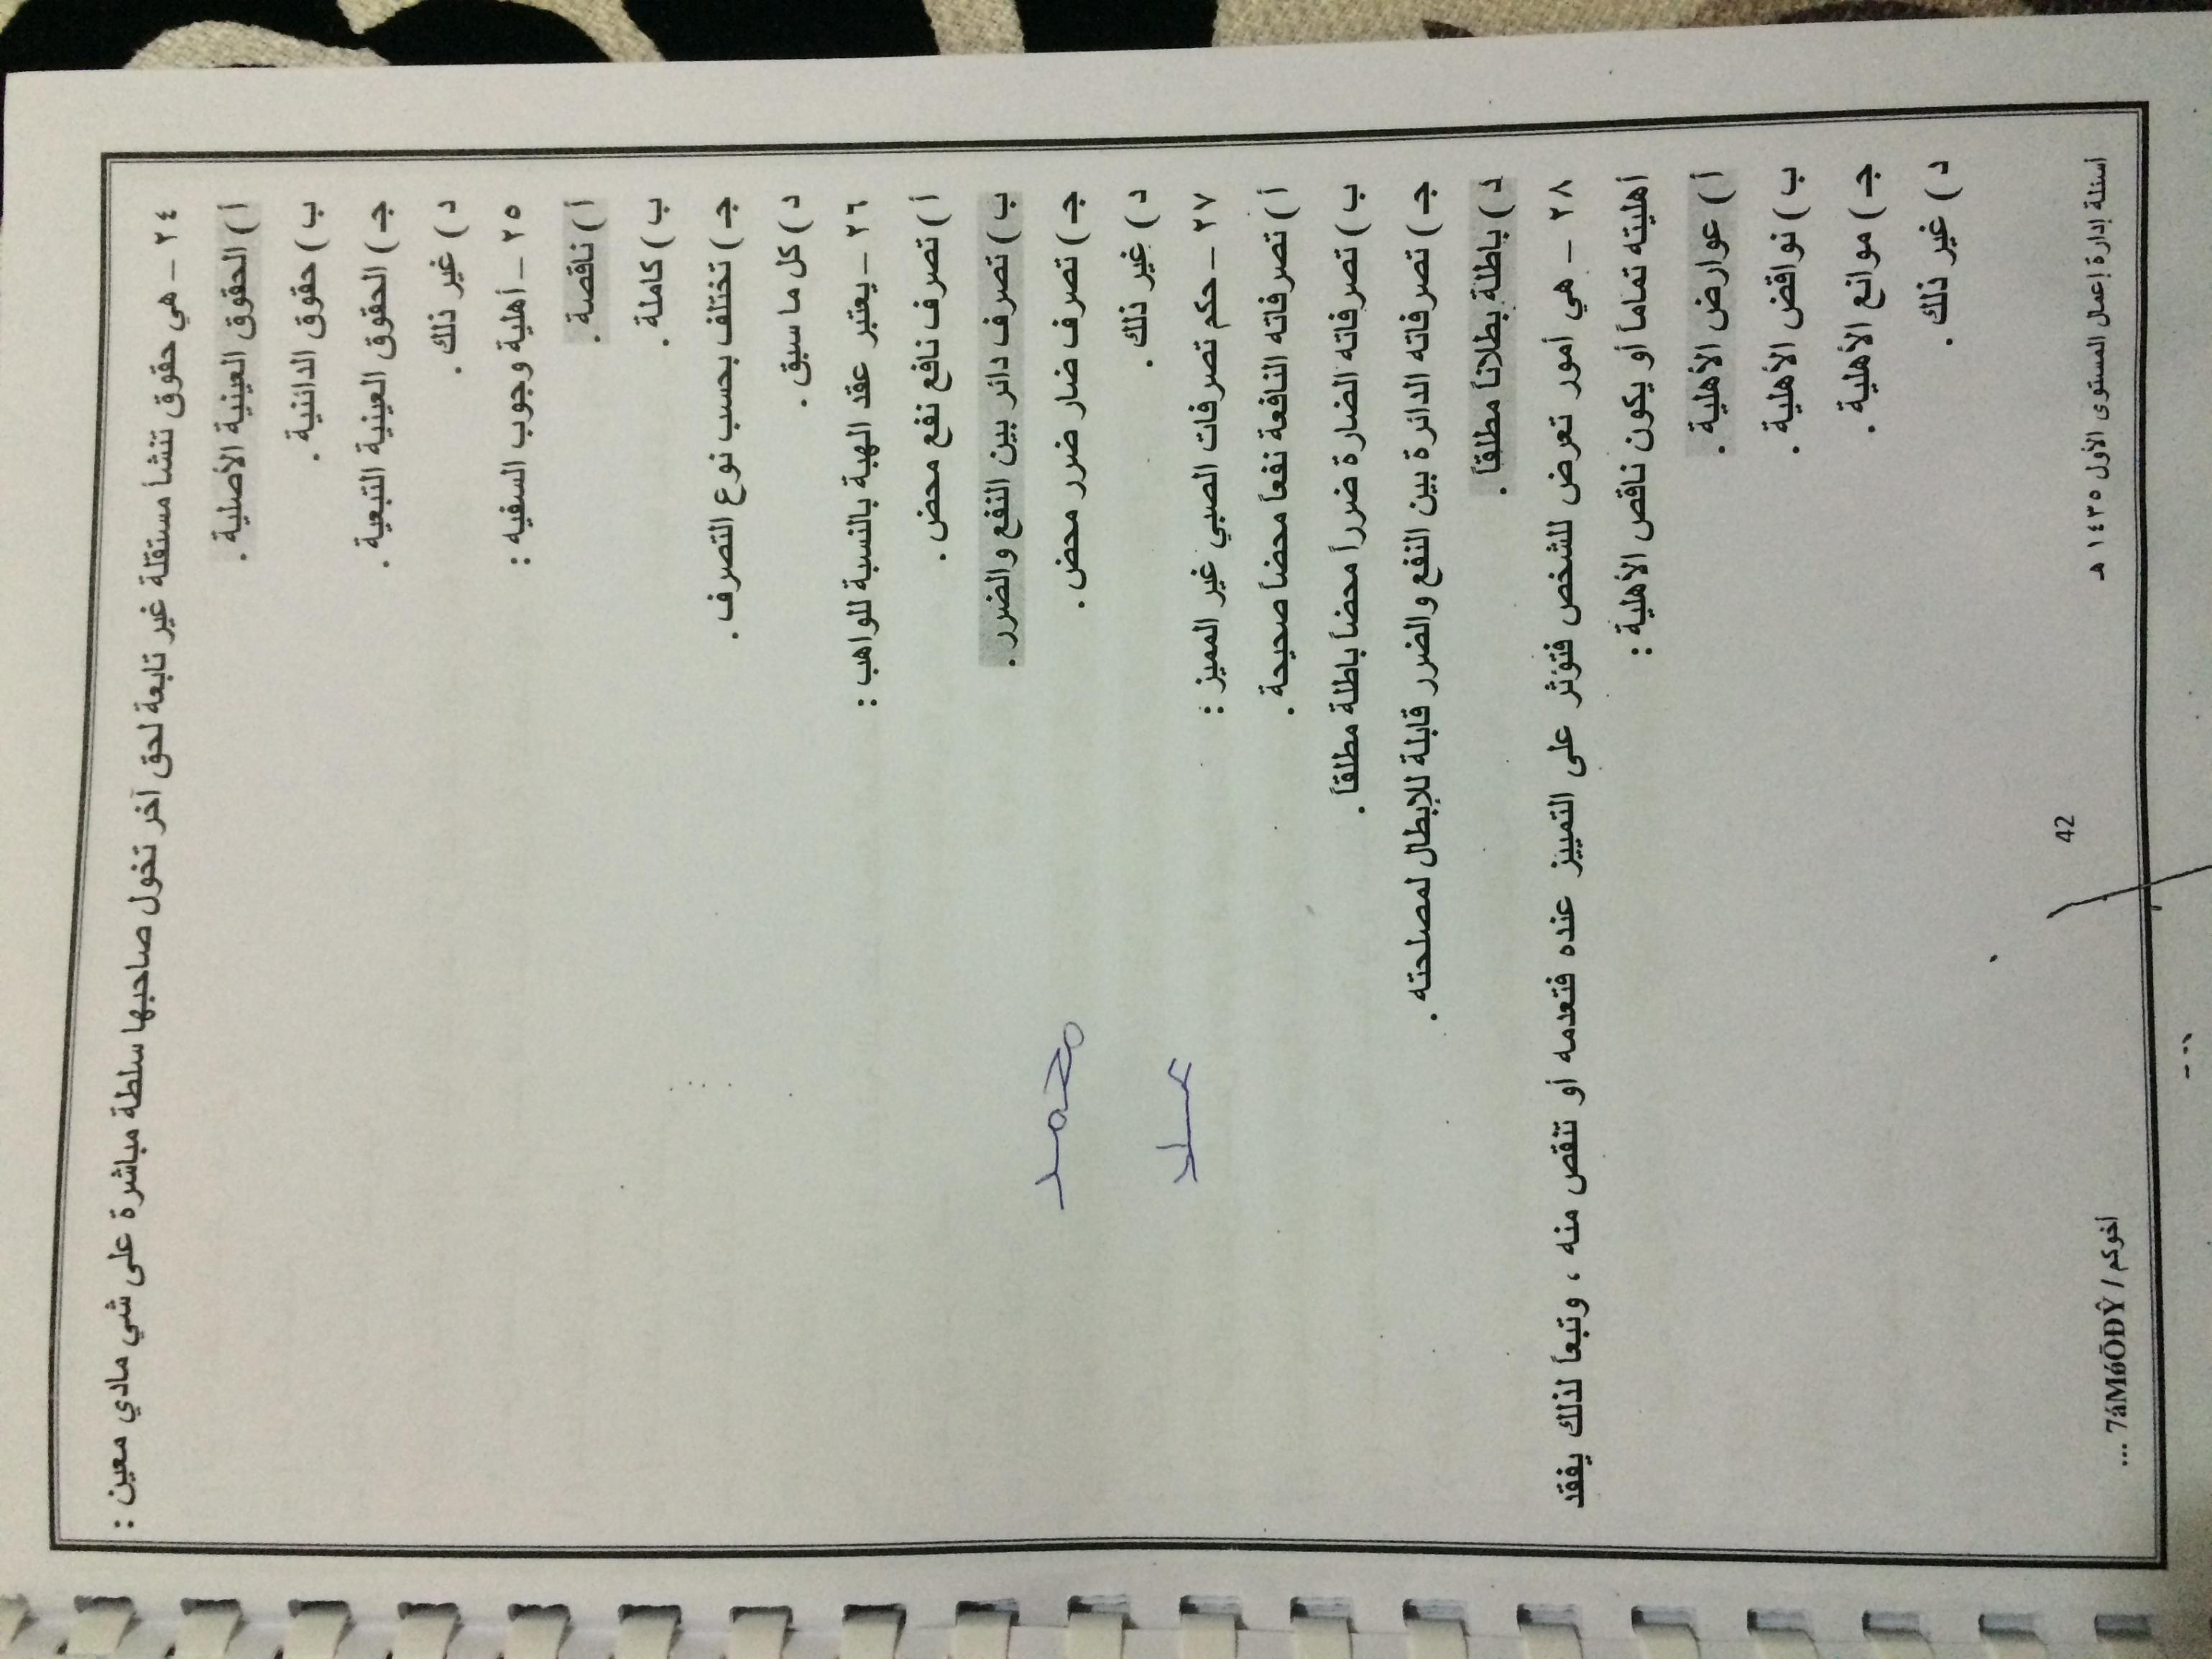 ٢٤ – هي حقوق تنشأ مستقلة غير تابعة لحق آخر تخول صاحبها سلطة مباشرة على شي مادي معين :
أ ) الحقوق العينية الأصلية .
ب ) حقوق الدائنية .
جـ ) الحقوق العينية التبعية .
د ) غير ذلك .
٢٥ – أهلية وجوب السفيه :
أ ) ناقصة .
ب ) كاملة .
جـ ) تختلف بحسب نوع التصرف .
د ) كل ما سبق .
٢٦ – يعتبر عقد الهبة بالنسبة للواهب :
أ ) تصرف نافع نفع محض .
ب ) تصرف دائر بين النفع والضرر .
جـ ) تصرف ضار ضرر محض .
د ) غير ذلك .
محمد
٢٧ – حكم تصرفات الصبي غير المميز :
أ ) تصرفاته النافعة نفعاً محضاً صحيحة .
ب ) تصرفاته الضارة ضرراً محضاً باطلة مطلقاً .
جـ ) تصرفاته الدائرة بين النفع والضرر قابلة للإبطال لمصلحته .
د ) باطلة بطلاناً مطلقاً .
٢٨ – هي أمور تعرض للشخص فتؤثر على التمييز عنده فتعدمه أو تنقص منه ، وتبعاً لذلك يفقد
أهليته تماماً أو يكون ناقص الأهلية :
أ ) عوارض الأهلية .
ب ) نواقض الأهلية .
جـ ) موانع الأهلية .
د ) غير ذلك .
42
أسئلة إدارة إعمال المستوى الأول ١٤٣٥ هـ
أخوكم / 7áMóÖĐŶ ...